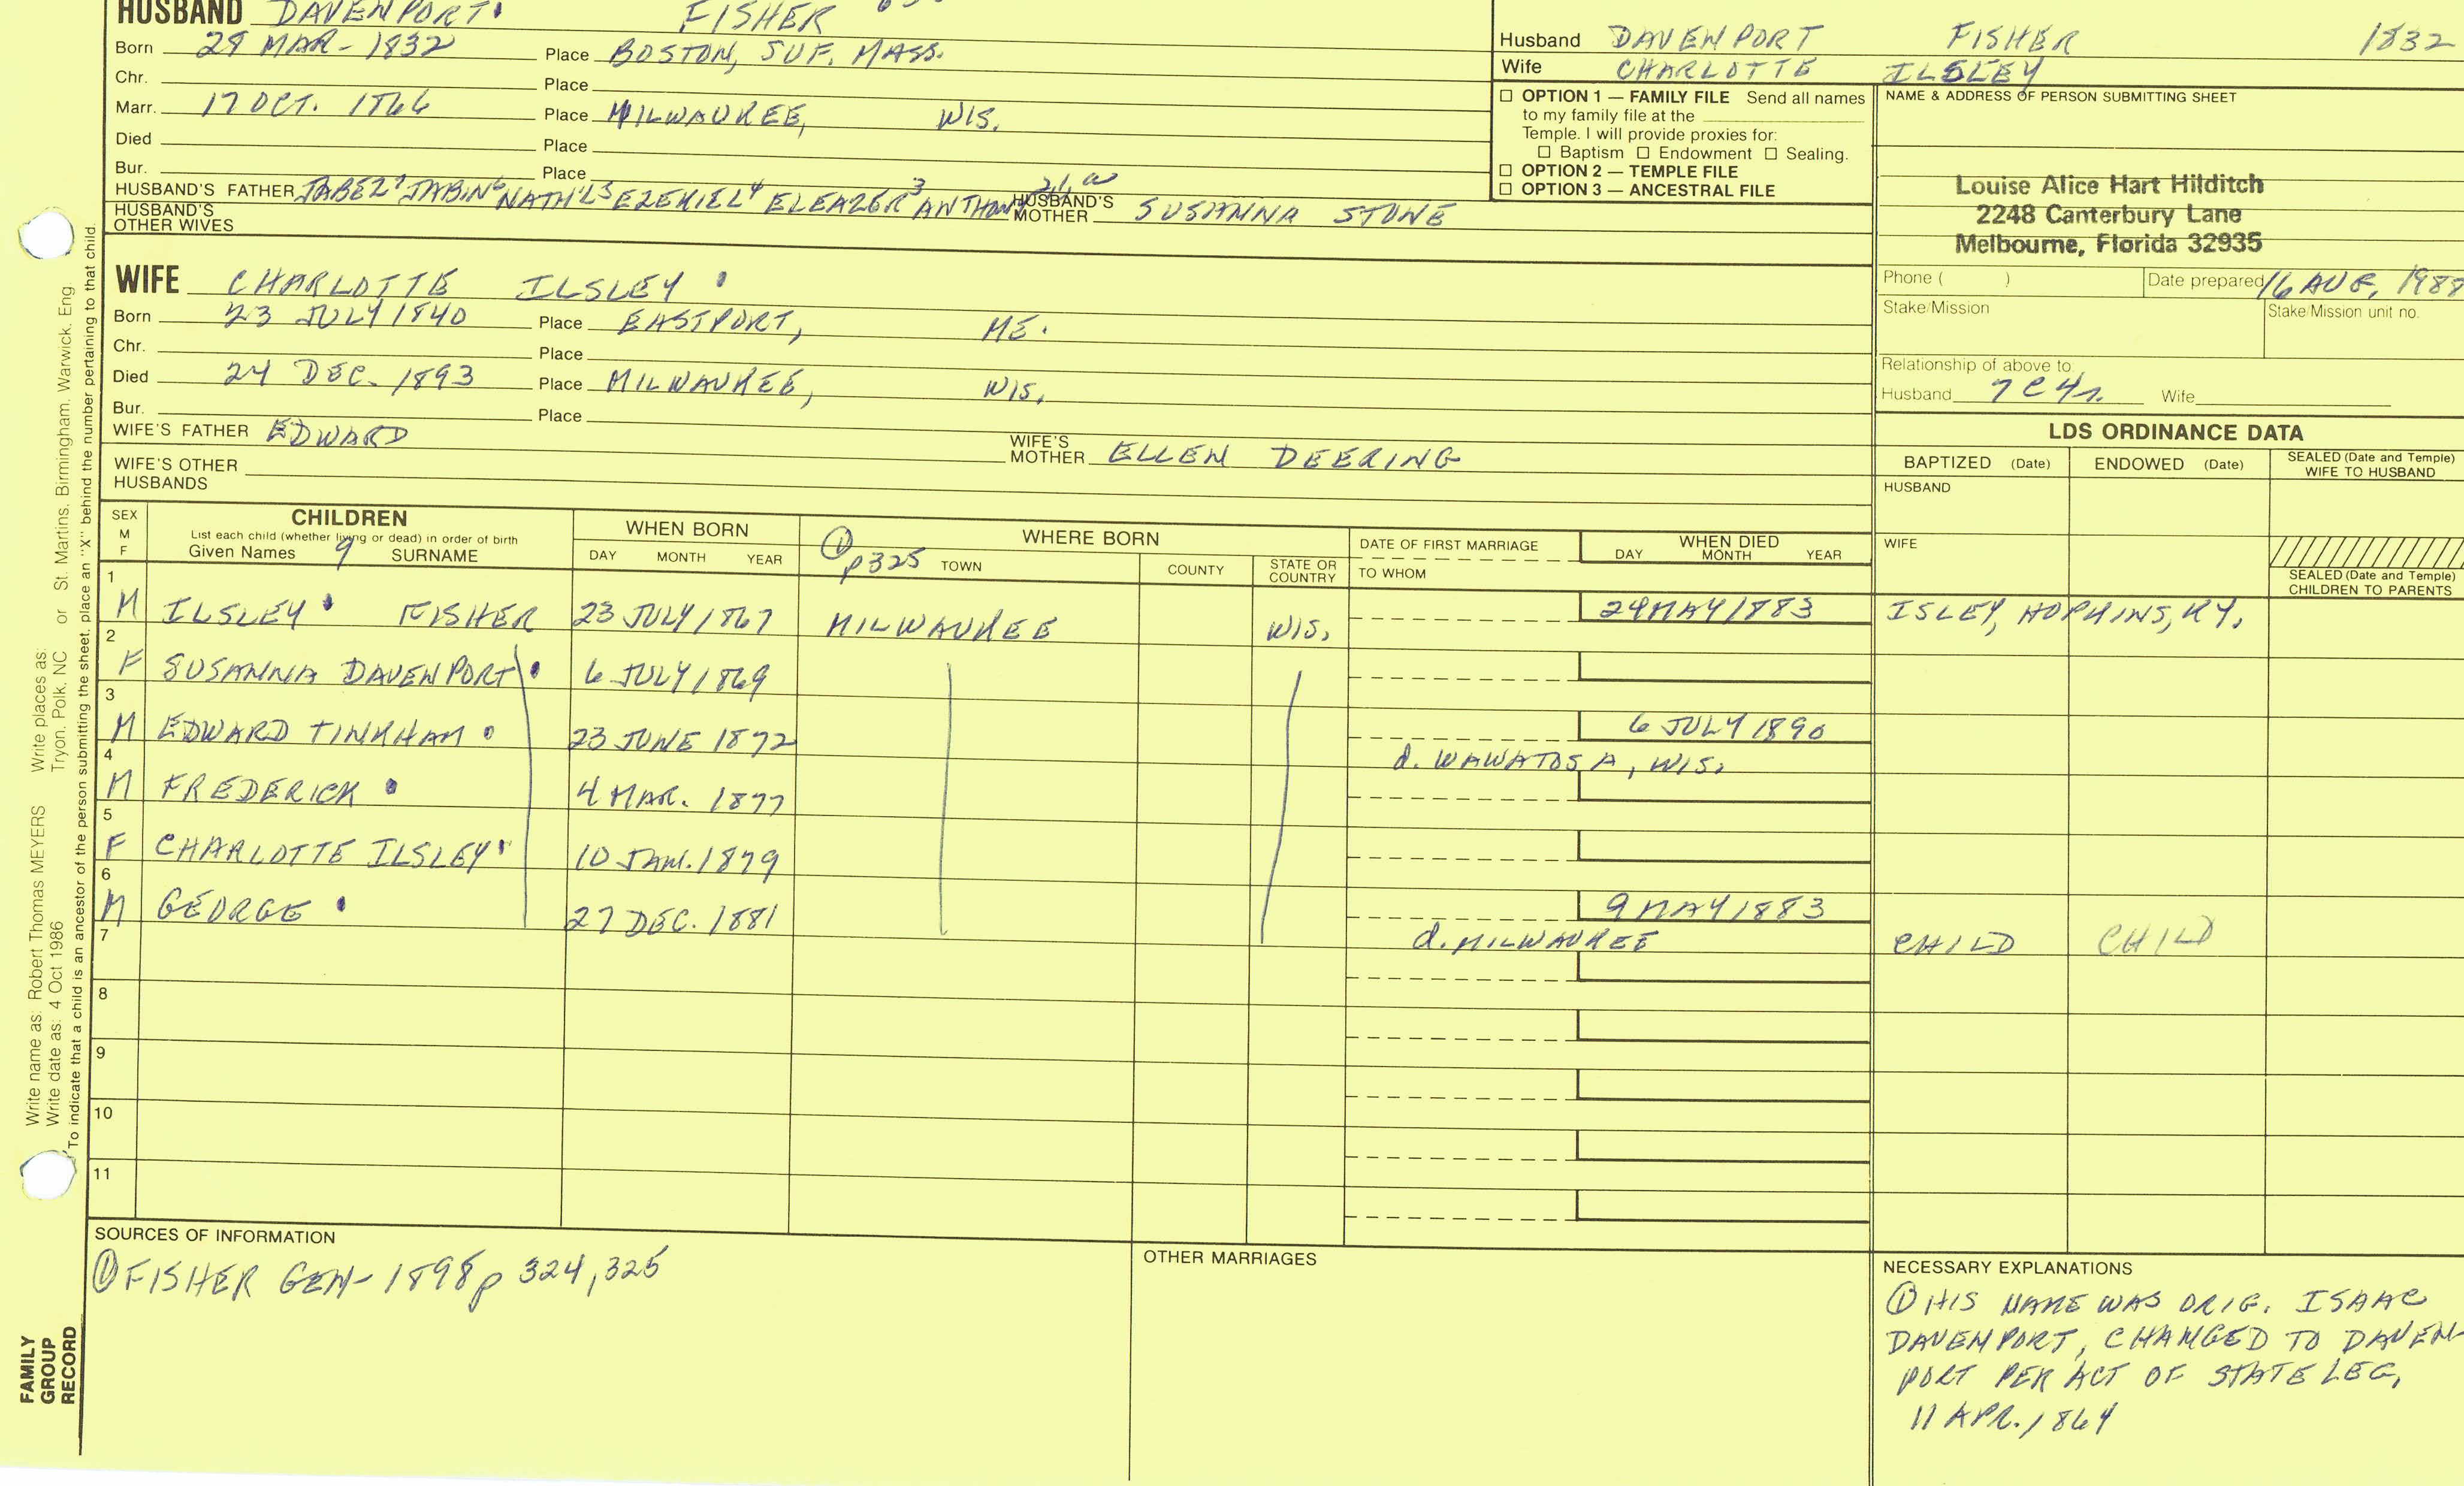 HUSBAND DAVENPORT FISHER
Born 29 MAR - 1832 Place BOSTON, SUF. MASS.
Chr. Place
Marr. 17 OCT. 1866 Place MILWAUKEE, WIS.
Died Place
Bur. Place
HUSBAND'S FATHER JABEZ7 JABIN6 NATH'L5 EZEKIEL4 ELEAZER3 ANTHONY2,1,a HUSBAND'S MOTHER SUSANNA STONE
HUSBAND'S OTHER WIVES
WIFE CHARLOTTE ILSLEY
Born 23 JULY 1840 Place EASTPORT, ME.
Chr. Place
Died 24 DEC. 1893 Place MILWAUKEE, WIS.
Bur. Place
WIFE'S FATHER EDWARD WIFE'S MOTHER ELLEN DEERING
WIFE'S OTHER HUSBANDS
Husband DAVENPORT FISHER 1832
Wife CHARLOTTE ILSLEY
☐ OPTION 1 — FAMILY FILE Send all names
to my family file at the
Temple. I will provide proxies for:
☐ Baptism ☐ Endowment ☐ Sealing.
☐ OPTION 2 — TEMPLE FILE
☐ OPTION 3 — ANCESTRAL FILE
NAME & ADDRESS OF PERSON SUBMITTING SHEET
Louise Alice Hart Hilditch
2248 Canterbury Lane
Melbourne, Florida 32935
Phone ( ) Date prepared 16 AUG, 1988
Stake/Mission Stake/Mission unit no.
Relationship of above to:
Husband 7C4r. Wife
LDS ORDINANCE DATA
BAPTIZED (Date) ENDOWED (Date) SEALED (Date and Temple) WIFE TO HUSBAND
HUSBAND
WIFE
SEALED (Date and Temple) CHILDREN TO PARENTS
SEX M F
CHILDREN
List each child (whether living or dead) in order of birth
Given Names 9 SURNAME
WHEN BORN
DAY MONTH YEAR
① p325 WHERE BORN
TOWN COUNTY STATE OR COUNTRY
DATE OF FIRST MARRIAGE
TO WHOM
WHEN DIED
DAY MONTH YEAR
1 M ILSLEY FISHER 23 JULY 1867 MILWAUKEE WIS. 29 MAY 1883 ISLEY, HOPKINS, KY.
2 F SUSANNA DAVENPORT 6 JULY 1869
3 M EDWARD TINKHAM 23 JUNE 1872 6 JULY 1890
d. WAWATOSA, WIS.
4 M FREDERICK 4 MAR. 1877
5 F CHARLOTTE ILSLEY 10 JAN. 1879
6 M GEORGE 27 DEC. 1881 9 MAY 1883
d. MILWAUKEE CHILD CHILD
7
8
9
10
11
SOURCES OF INFORMATION
① FISHER GEN - 1898 p 324, 325
OTHER MARRIAGES
NECESSARY EXPLANATIONS
① HIS NAME WAS ORIG. ISAAC
DAVENPORT, CHANGED TO DAVEN-
PORT PER ACT OF STATE LEG,
11 APR. 1864
Write name as: Robert Thomas MEYERS Write places as: St. Martins, Birmingham, Warwick, Eng
Write date as: 4 Oct 1986 Tryon, Polk, NC or
To indicate that a child is an ancestor of the person submitting the sheet, place an "X" behind the number pertaining to that child.
FAMILY
GROUP
RECORD